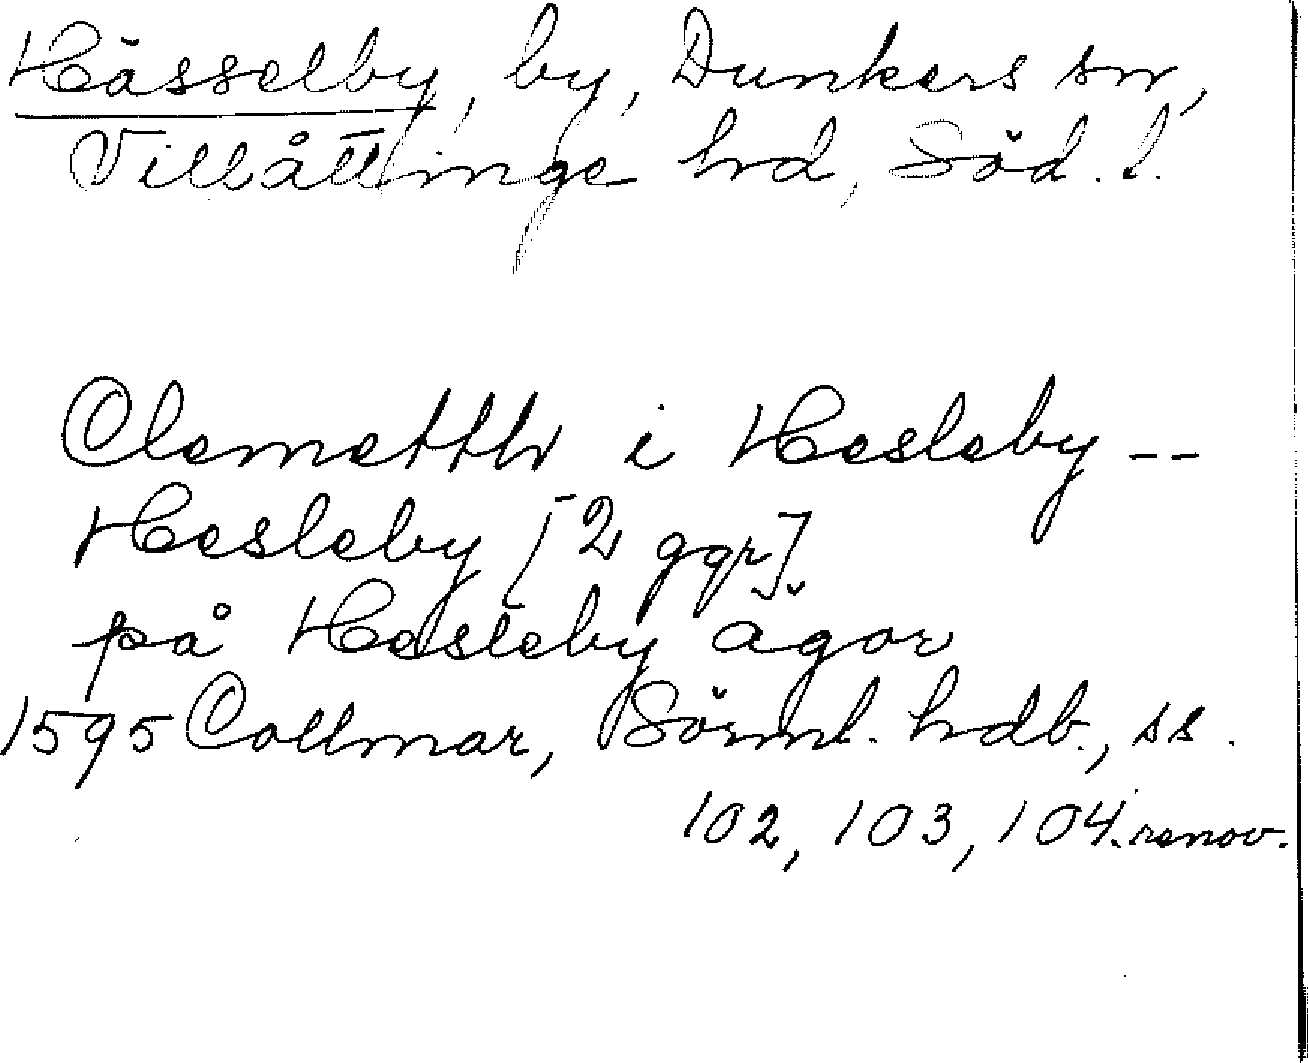 Hässelby, by, Dunkers sn,
Villåttinge hd, Söd. l.
Clemetth i Hesleby --
Hesleby [2 ggr].
på Hesleby ägor
1595 Collmar, Sörml. hdb., ss.
102, 103, 104. renov.